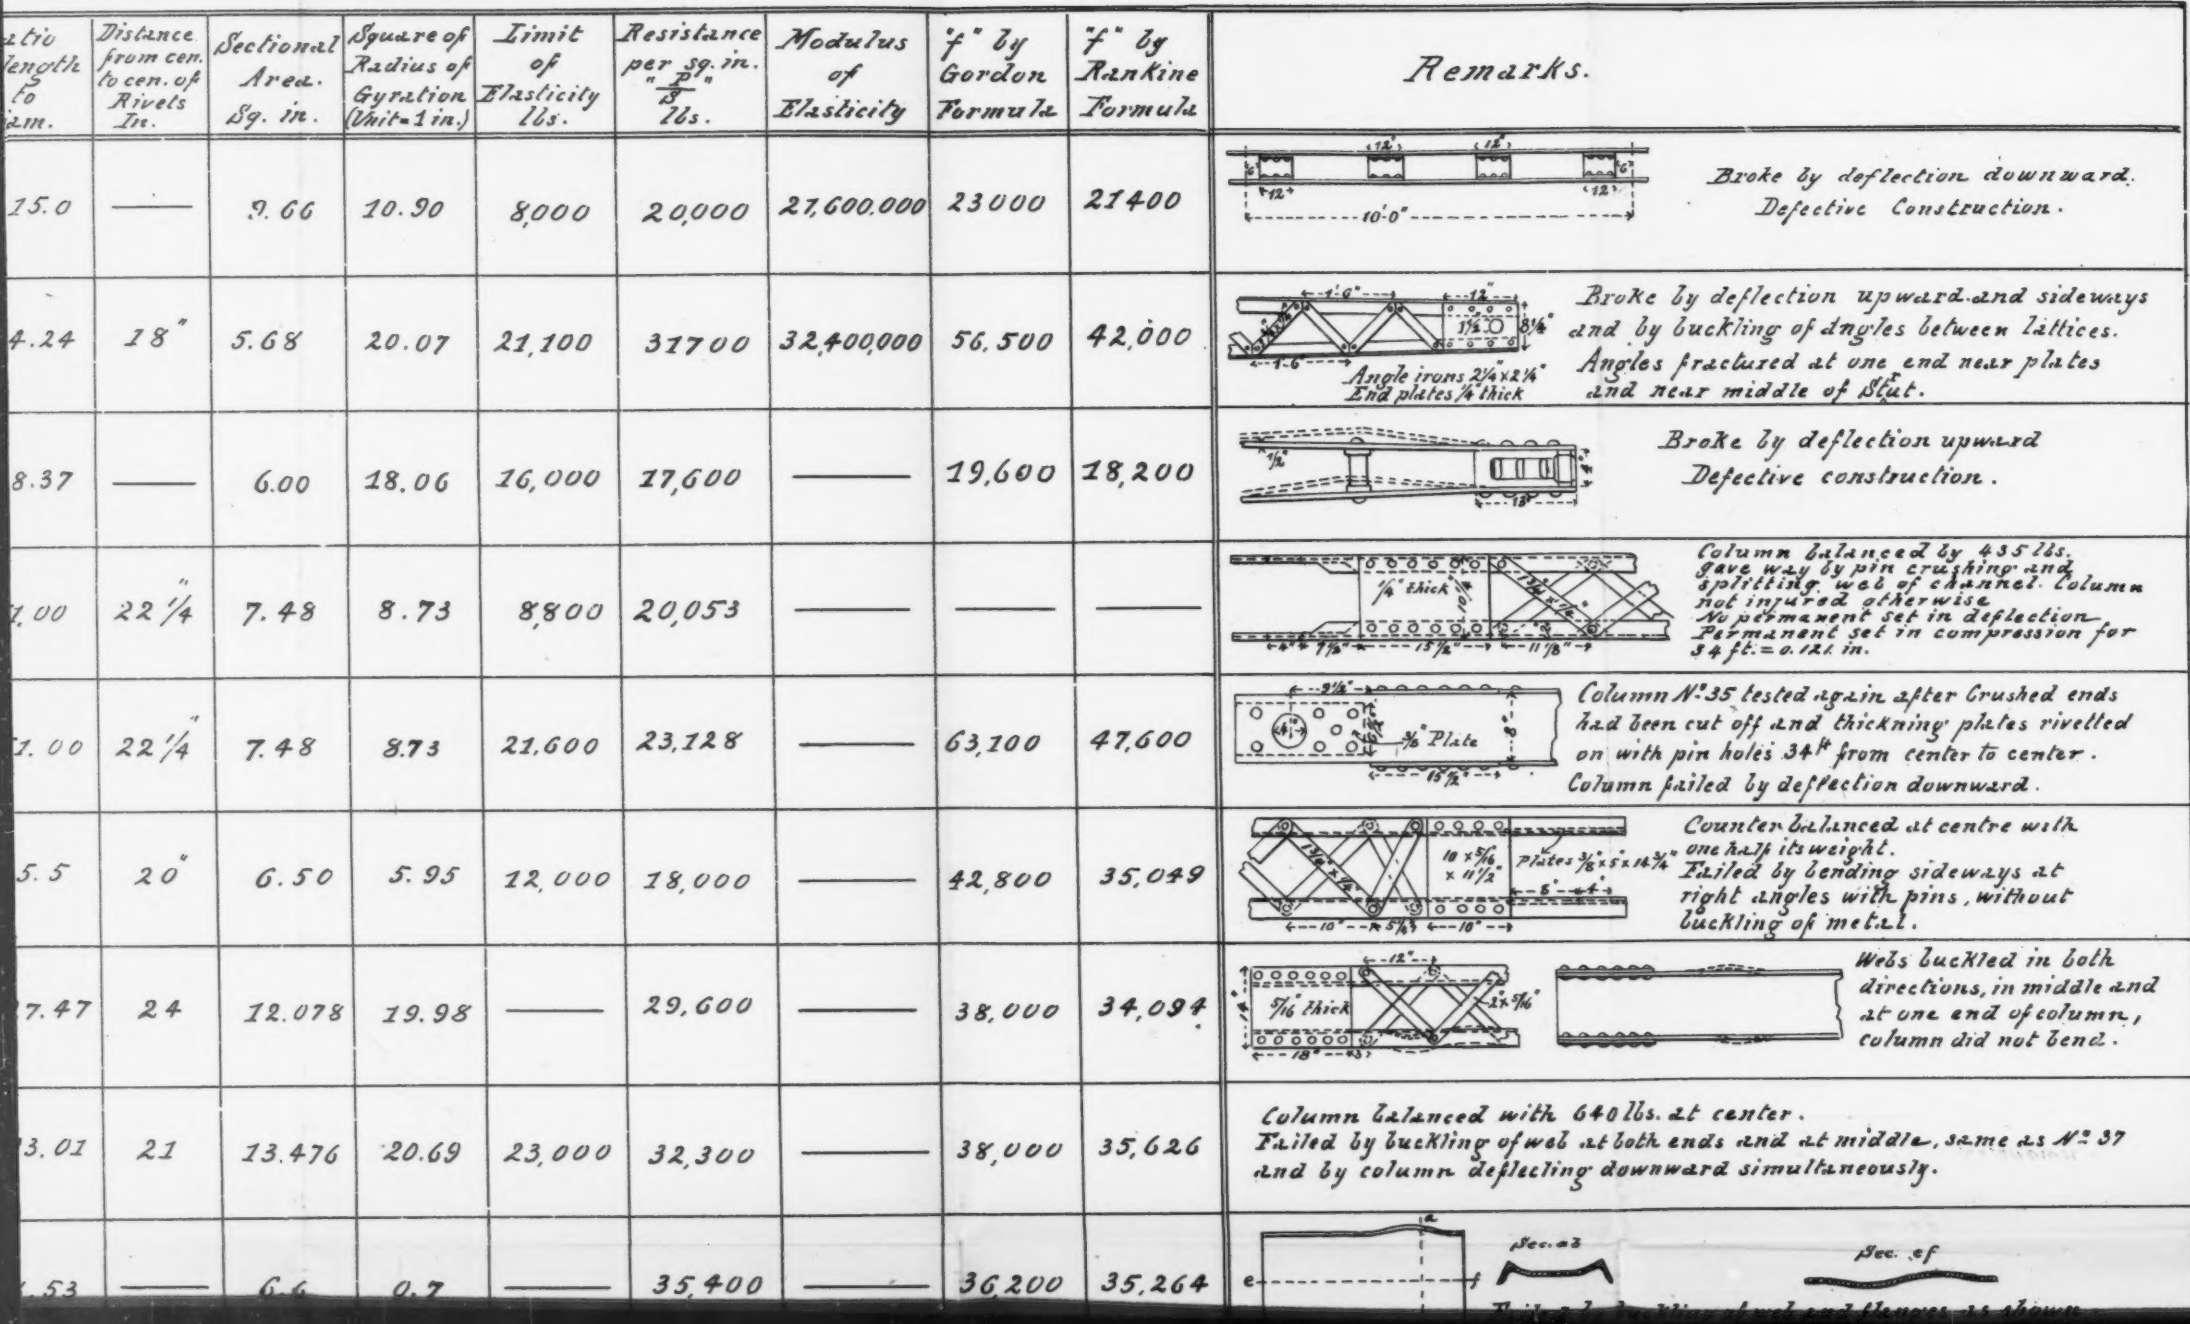 atio length to iam.
Distance from cen. to cen. of Rivets In.
Sectional Area. Sq. in.
Square of Radius of Gyration (Unit=1 in.)
Limit of Elasticity lbs.
Resistance per sq. in. "P/S" lbs.
Modulus of Elasticity
"f" by Gordon Formula
"f" by Rankine Formula
Remarks.
15.0 — 9.66 10.90 8,000 20,000 27,600.000 23000 21400
12" 12"
6" 6"
12 12
10'-0"
Broke by deflection downward.
Defective Construction.
4.24 18" 5.68 20.07 21,100 31700 32,400,000 56,500 42,000
1'-6" 12"
1½" 8¼"
1'-6"
Angle irons 2¼"×2¼"
End plates ¼" thick
Broke by deflection upward and sideways
and by buckling of angles between lattices.
Angles fractured at one end near plates
and near middle of Stut.
r
8.37 — 6.00 18.06 16,000 17,600 — 19,600 18,200
½" 4"
Broke by deflection upward
Defective construction.
1,00 22¼" 7.48 8.73 8,800 20,053 — — —
¼" thick 10¼ 1¾"×¼"
4" 7½" 15½" 11⅛"
Column balanced by 435 lbs.
gave way by pin crushing and
splitting web of channel. Column
not injured otherwise
No permanent set in deflection
Permanent set in compression for
34 ft. = 0.121 in.
1.00 22¼" 7.48 8.73 21,600 23,128 — 63,100 47,600
9½"
⅜" Plate 8"
15½"
Column No. 35 tested again after Crushed ends
had been cut off and thickning plates rivetted
on with pin holes 34ft from center to center.
Column failed by deflection downward.
5.5 20" 6.50 5.95 12,000 18,000 — 42,800 35,049
1¾"×¼"
10 × 5/16 × 11½"
Plates ⅜"×5"×14¾"
8" 4"
10" 5¼" 10"
Counter balanced at centre with
one half its weight.
Failed by bending sideways at
right angles with pins, without
buckling of metal.
7.47 24 12.078 19.98 — 29,600 — 38,000 34,094
12"
14" 5/16" thick 2"×5/16"
18" 3
Webs buckled in both
directions, in middle and
at one end of column,
column did not bend.
3.01 21 13.476 20.69 23,000 32,300 — 38,000 35,626
Column balanced with 640 lbs. at center.
Failed by buckling of web at both ends and at middle, same as No. 37
and by column deflecting downward simultaneously.
.53 — 6.6 0.7 — 35,400 — 36,200 35,264
a
e f
Sec. a b
Sec. ef
Failed by buckling of web and flanges as shown